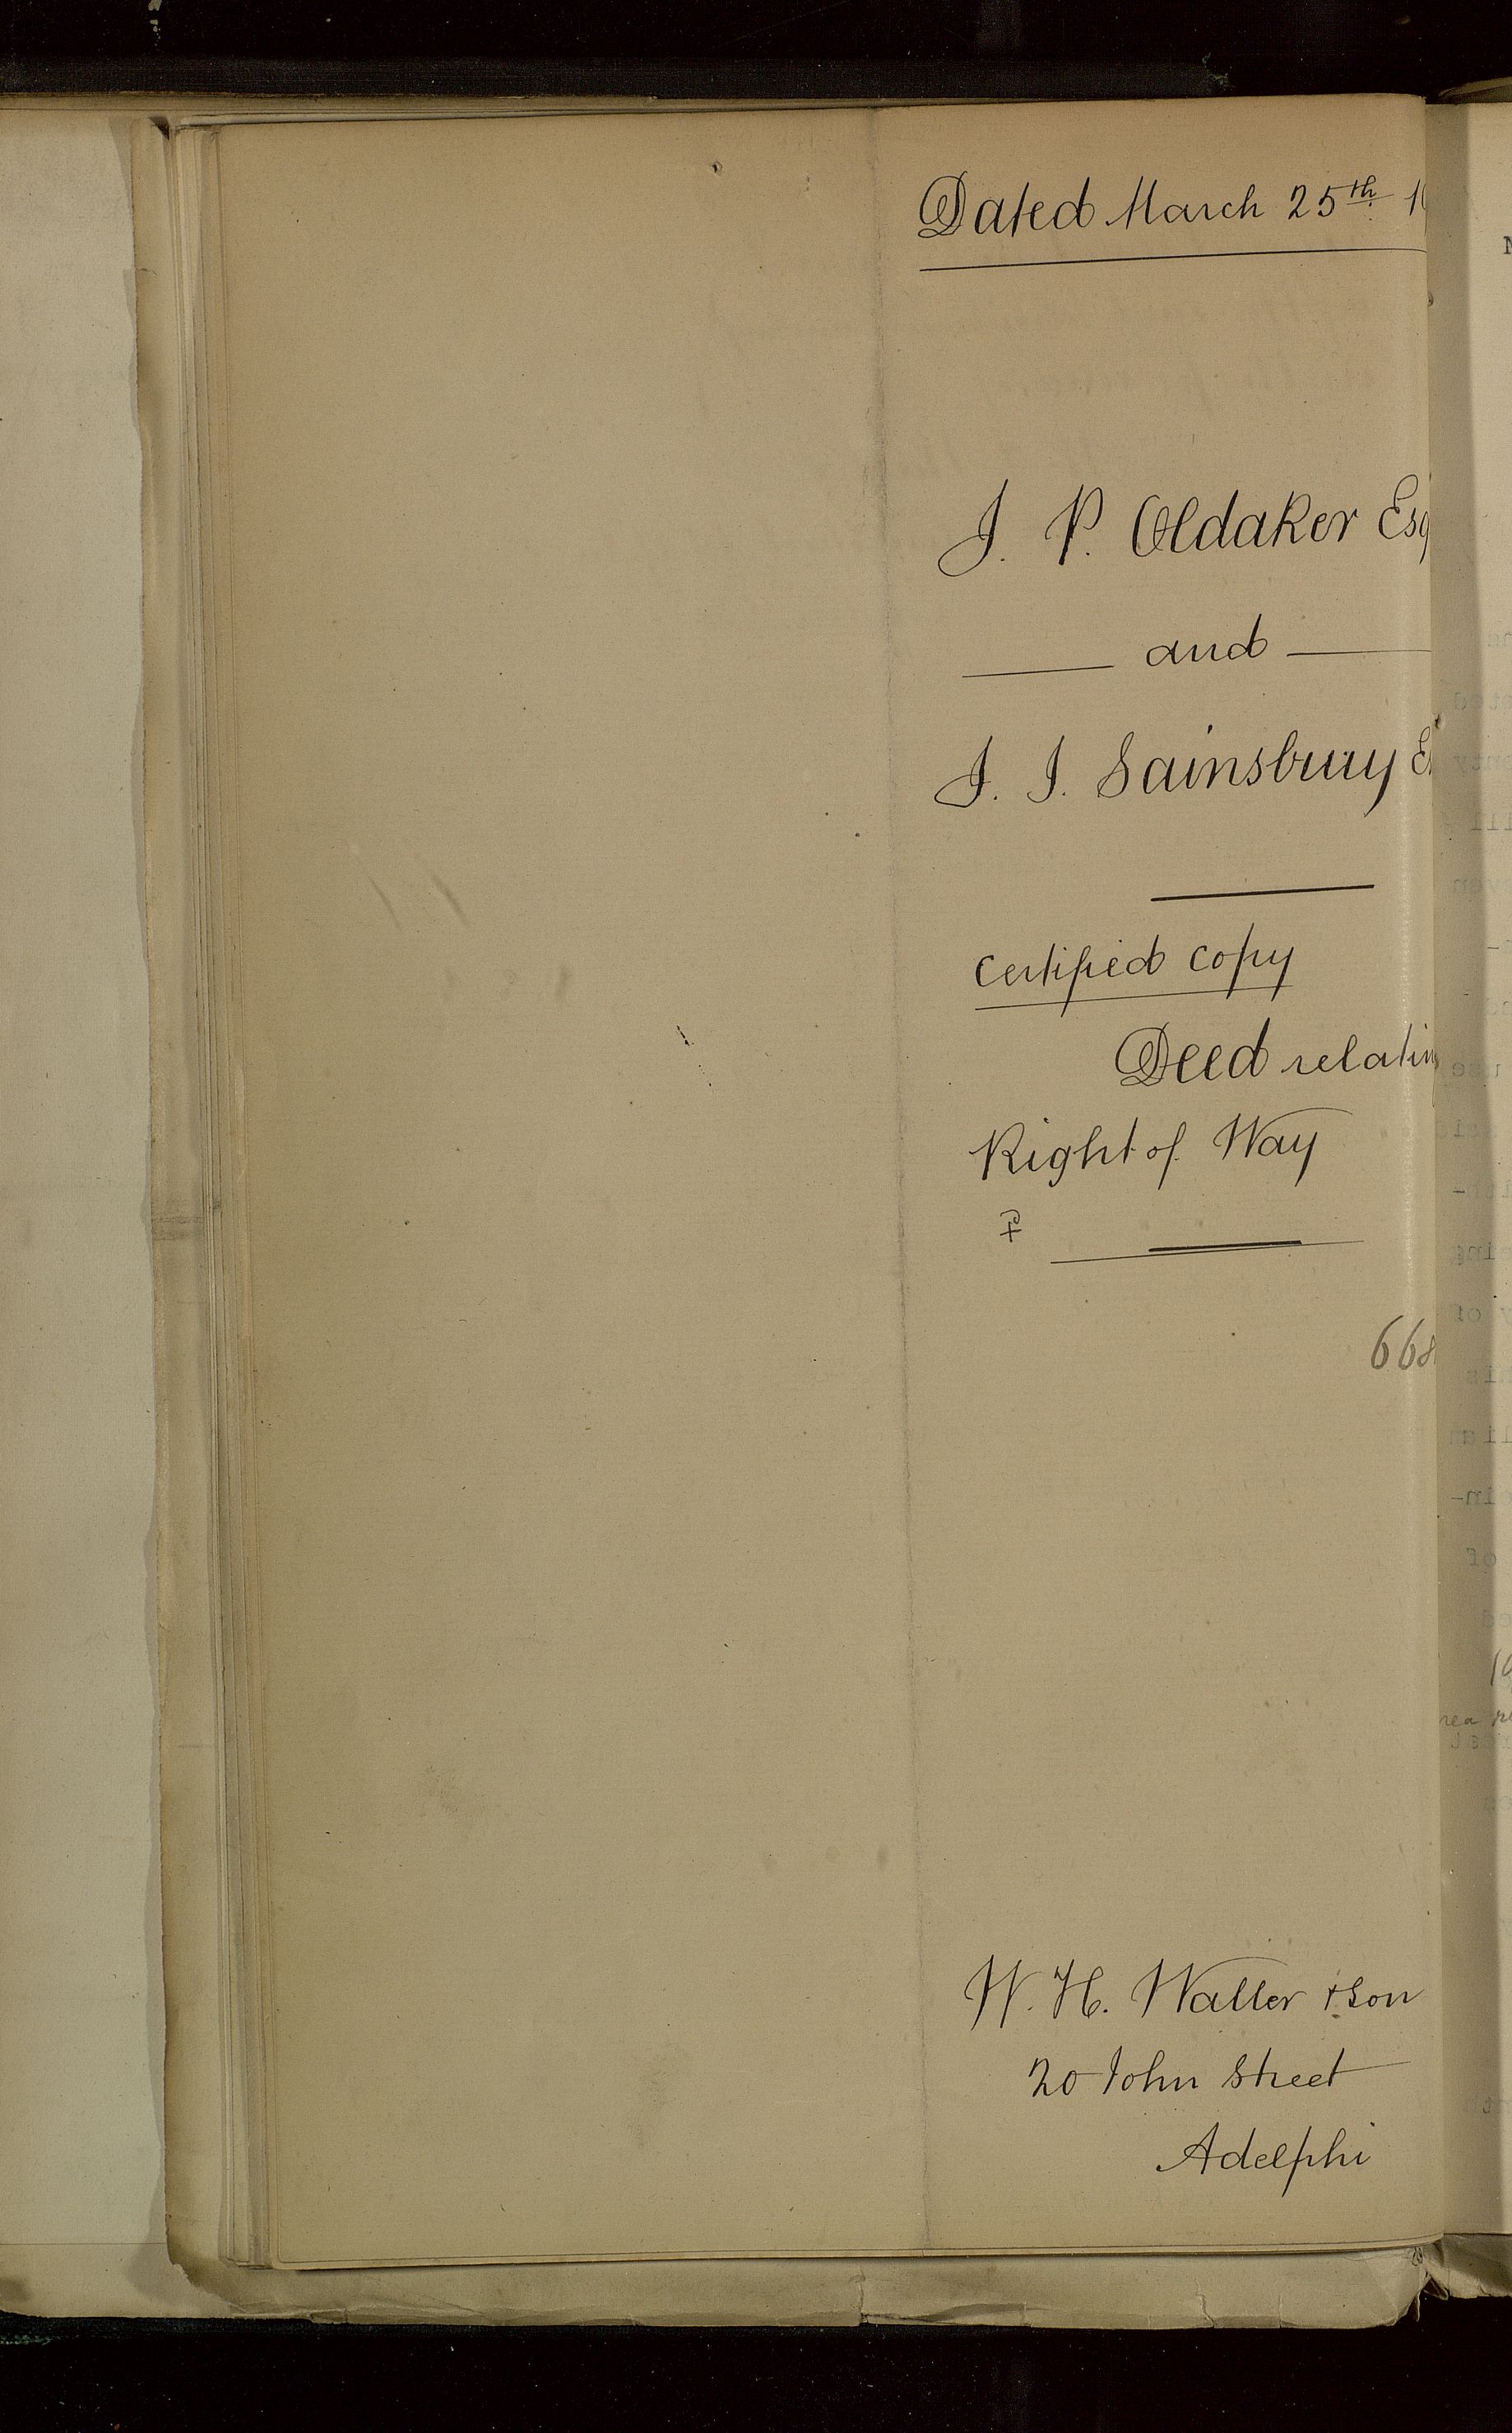 Dated March 25th 1
J. P. Oldaker Esq
and
J. J. Sainsbury E
Certified Copy
Deed relatin
Right of Way
668
W. H. Waller & Son
20 John Street
Adelphi